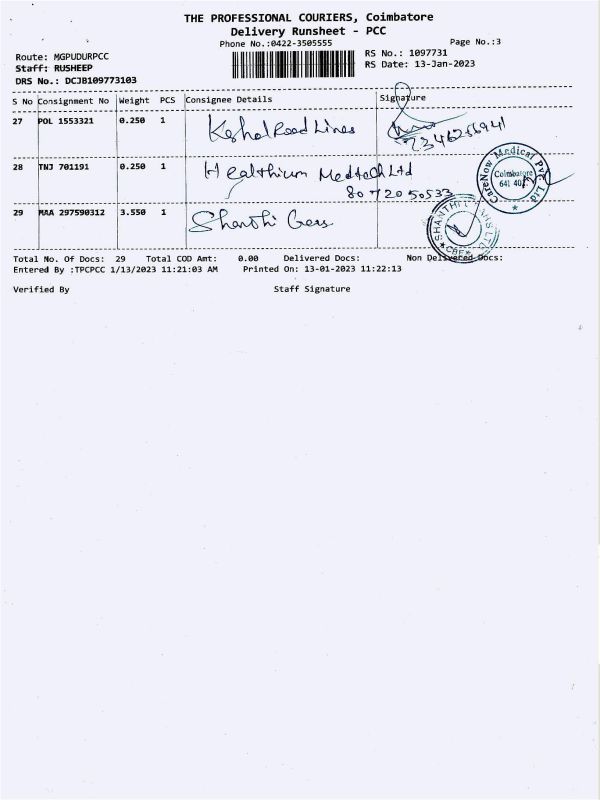 THE PROFESSIONAL COURIERS, Coimbatore
Delivery Runsheet - PCC
Phone No.:0422-3505555
Page No.:3
Route: MGPUDURPCC
RS No.: 1097731
Staff: RUSHEEP
RS Date: 13-Jan-2023
DRS No.: DCJB109773103
S No Consignment No Weight PCS Consignee Details Signature
27 POL 1553321 0.250 1
Road Lines
28 TNJ 701191 0.250 1 Healthium Medtech Ltd
80720 50533
CareNow Medical Pvt. Ltd
Coimbatore
29 MAA 297590312 3.550 1 Shanthi Gears
SHANTHI
CBE
Total No. Of Docs: 29 Total COD Amt: 0.00 Delivered Docs: Non Delivered Docs:
Entered By :TPCPCC 1/13/2023 11:21:03 AM Printed On: 13-01-2023 11:22:13
Verified By Staff Signature